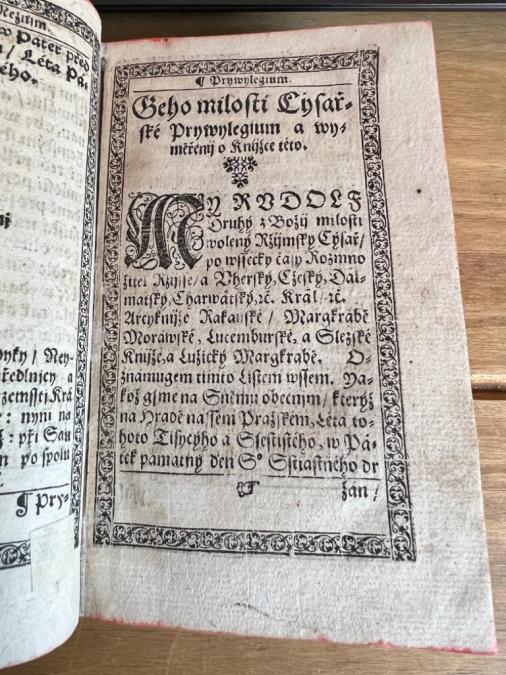 w Pátek před
/ Léta Pá-
ého.
dyky / Ney-
ředlnicy a
zemsſtí Krá
: nyni na
: při Sau
po ſpolu
¶ Pry-
¶ Prywylegium.
Geho miloſti Cýſař-
ſké Prywylegium a wy-
měřenij o Knijžce této.
MY RVDOLF
Druhý z Božij miloſti
wolený Ržijmſký Cýſař /
po wſſecky čaſy Rozmno
žitel Ržijſſe / a Vherſký, Cžeſký, Dal-
matſký, Charwátſký, ꝛč. Král / ꝛč.
Arcyknijže Rakauſké / Margkrabě
Morawſké, Lucemburſké, a Slezſké
Knijže, a Lužický Margkrabě. O-
znamugem tijmto Liſtem wſſem. Ja-
kož gſme na Sněmu obecnijm / kterýž
na Hradě naſſem Pražſkém, Léta to-
hoto Tiſycýho a Sſeſtiſtého, w Pá-
tek památný den S° Sſtiaſtného dr
žán /